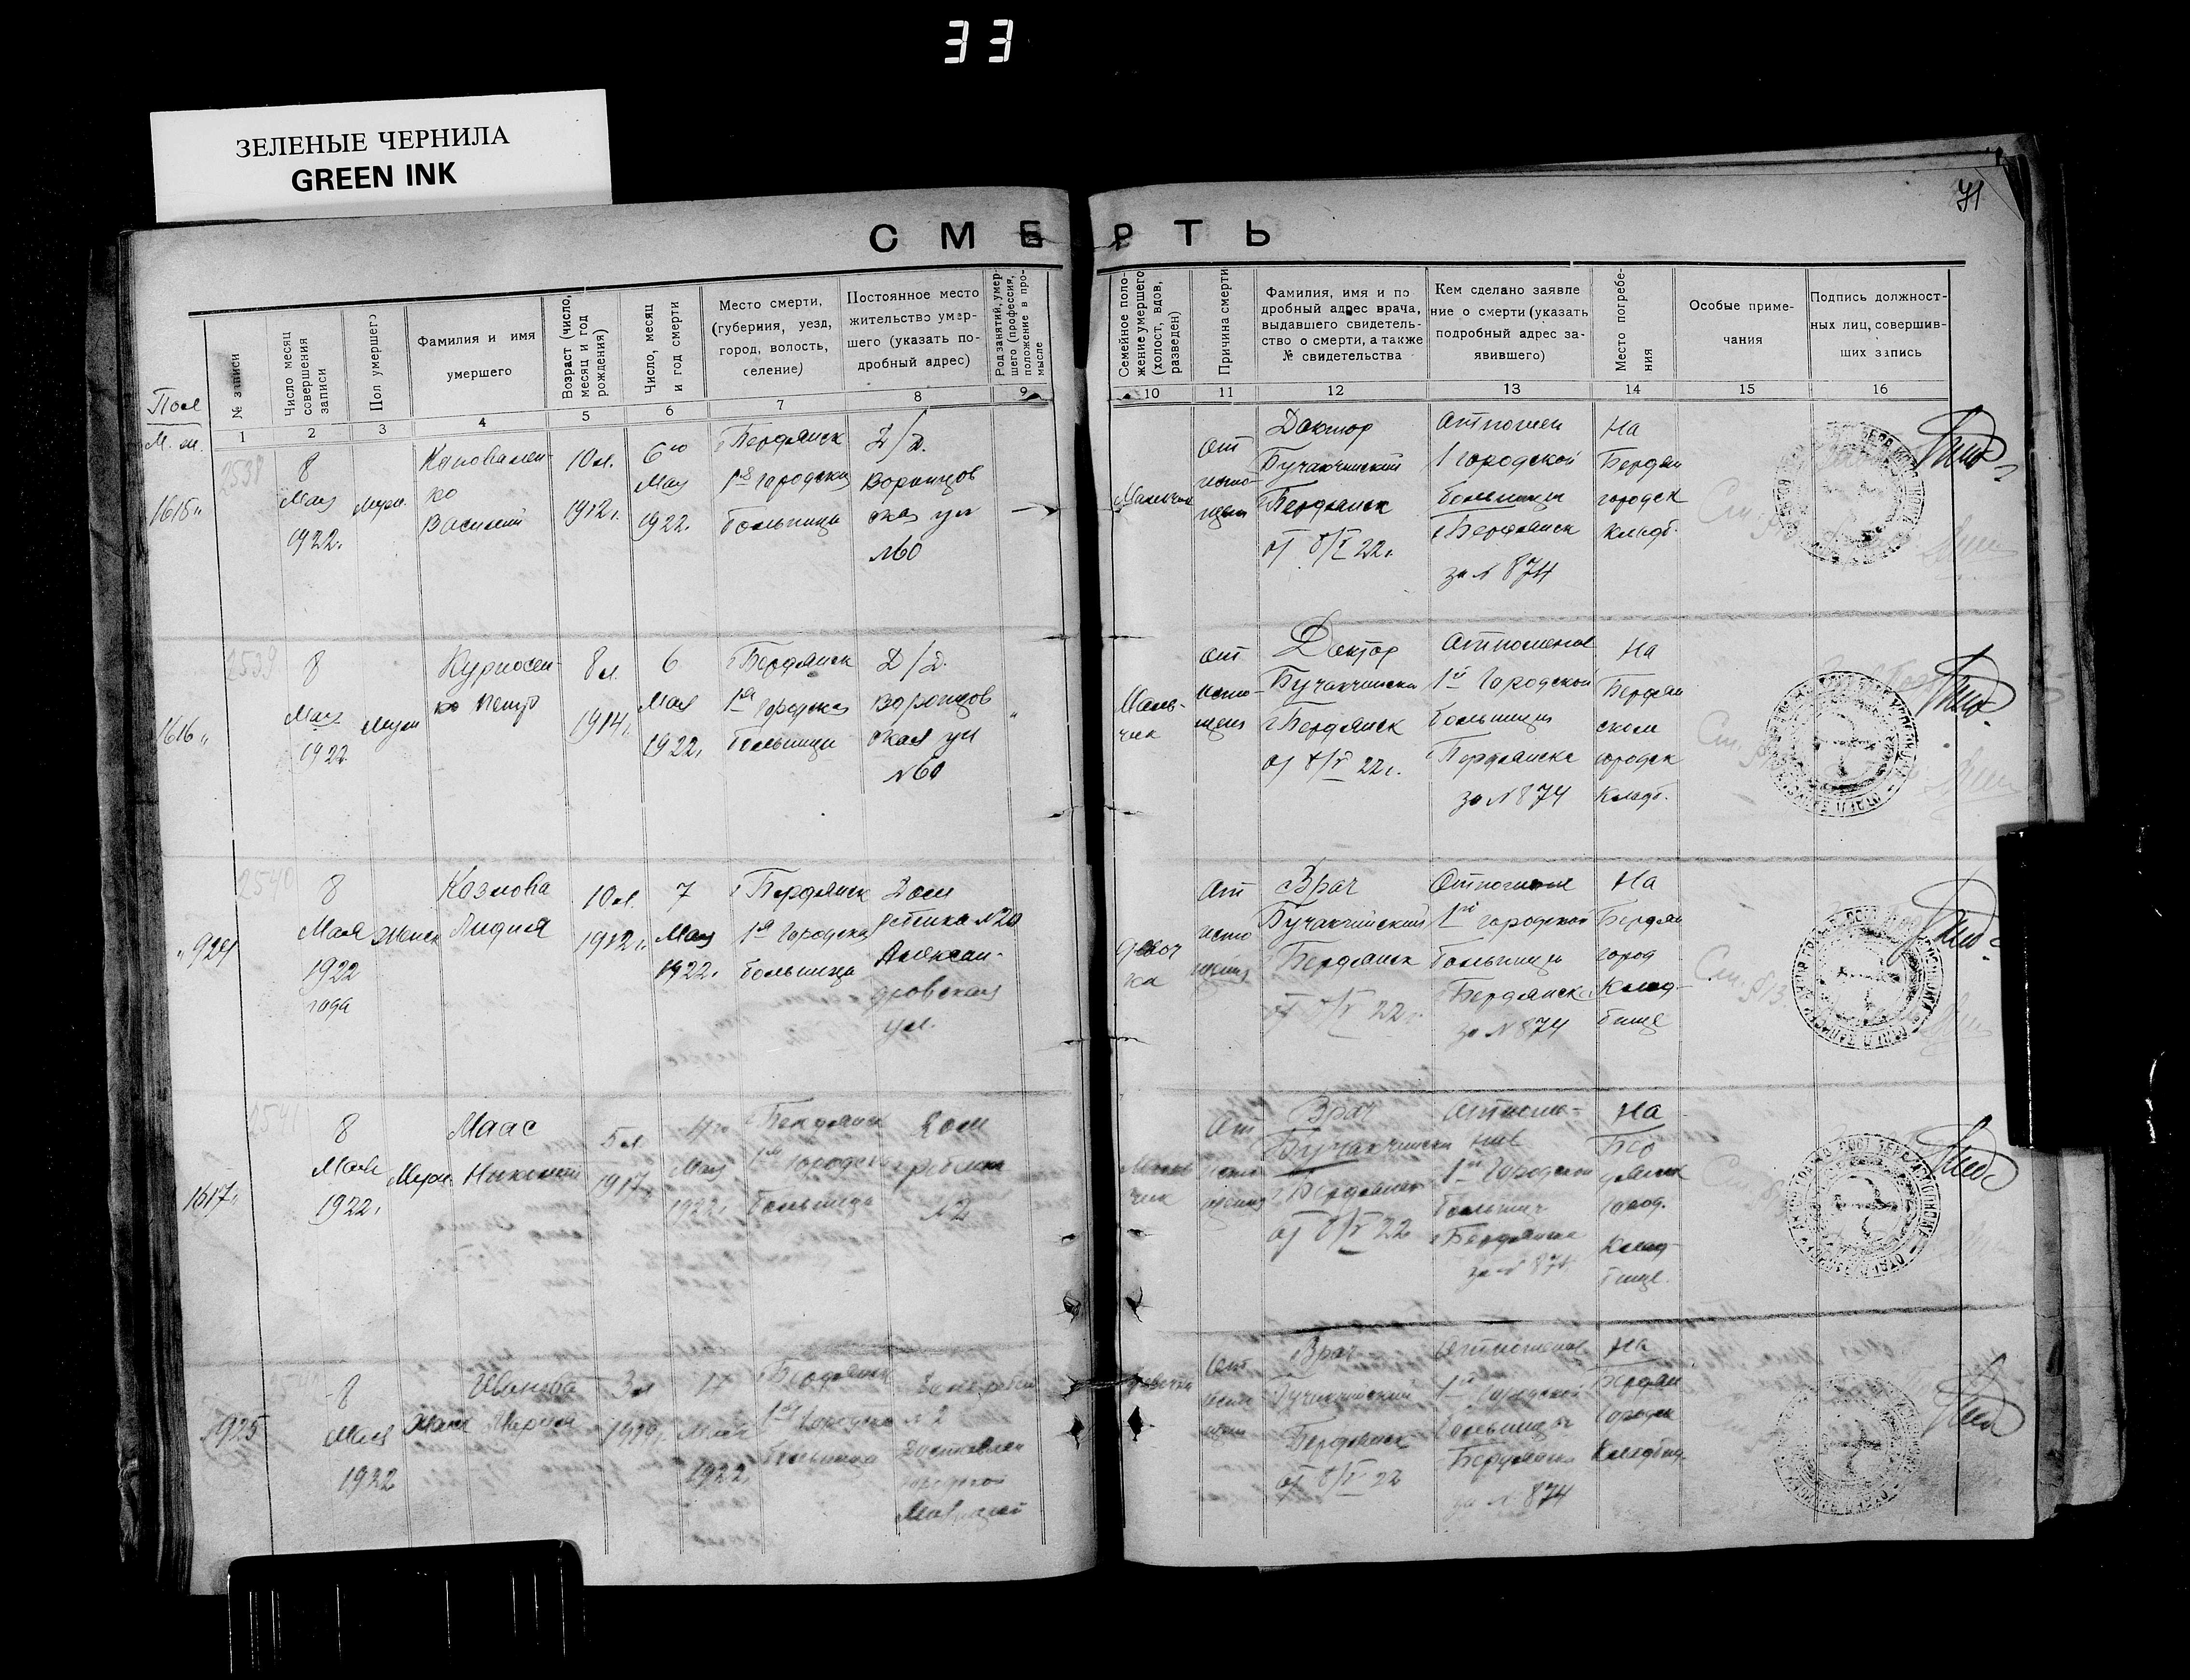 33
ЗЕЛЕНЫЕ ЧЕРНИЛА
GREEN INK
71
СМЕРТЬ
Пол
М. ж.
№ записи
Число месяц совершения записи
Пол умершего
Фамилия и имя
умершего
Возраст (число, месяц и год рождения)
Число, месяц и год смерти
Место смерти,
(губерния, уезд,
город, волость,
селение)
Постоянное место
жительство умер-
шего (указать по-
дробный адрес)
Род занятий, умер-
шего (профессия,
положение в про-
мысле
Семейное поло-
жение умершего
(холост, вдов,
разведен)
Причина смерти
Фамилия, имя и по
дробный адрес врача,
выдавшего свидетель-
ство о смерти, а также
№ свидетельства
Кем сделано заявле
ние о смерти (указать
подробный адрес за-
явившего)
Место погребе-
ния
Особые приме-
чания
Подпись должност-
ных лиц, совершив-
ших запись
1 2 3 4 5 6 7 8 9 10 11 12 13 14 15 16
2538
1615
8
Мая
1922г.
Муж.
Коновален-
ко
Василий
10 л.
1912 г.
6го
Мая
1922.
г Бердянск
1я городская
больница
Д/д.
Воронцов
ская ул
№60
Мальчик
От
исто-
щен
Доктор
Бучакчийский
г Бердянск
от 8/V 22 г.
1 городской
больницы
г Бердянск
за № 874
На
Бердян
городск
кладб.
2539
1616
8
Мая
1922
Муж
Петр
8 л.
1914 г.
6
Мая
1922 г.
г Бердянск
1я городская
больница
Д/д.
Воронцов
ская ул
№60
Маль-
чик
От
исто-
щения
Доктор
г Бердянск
от 8/V 22 г.
1й Городской
больницы
г Бердянска
за № 874
На
Бердян
ском
городск
кладб.
2540
924
8
Мая
1922
года
Женск
Козлова
Лидия
10 л.
1912 г.
7
Мая
1922 г.
г Бердянск
1я Городская
больница
Дом
Ребенка №20
Алексан-
дровская
ул.
Девоч
ка
От
исто
щения
Врач
Бучакчийский
г Бердянск
от 8/V 22 г.
1й городской
больницы
г Бердянск
за № 874
На
Бердян
город
Клад-
бище
2541
1617
8
Мая
1922 г.
Муж
Маас
Николай
5 л.
1917 г.
Мая
1922 г.
г Бердянск
1я Городская
больница
Дом
ребенка
№2
Маль
чик
От
исто
щения
Врач
г Бердянск
от 8/V 22
1й Городской
больниц
г Бердянска
за № 874
На
Бер
дянск
город.
Клад-
бище.
925
8
Мая
1922
Женск
Иванова
Мария
3 л
Мая
1922 г.
г Бердянск
1я Городская
больница
Дом ребен
№2
Доставлен
городской
Милицией
Девочка
От
исто
щен
Врач
Бучакчийский
г Бердянск
от 8/V 22
1й Городской
больницы
г Бердянска
за № 874
На
Бердян
городск
Кладбищ.